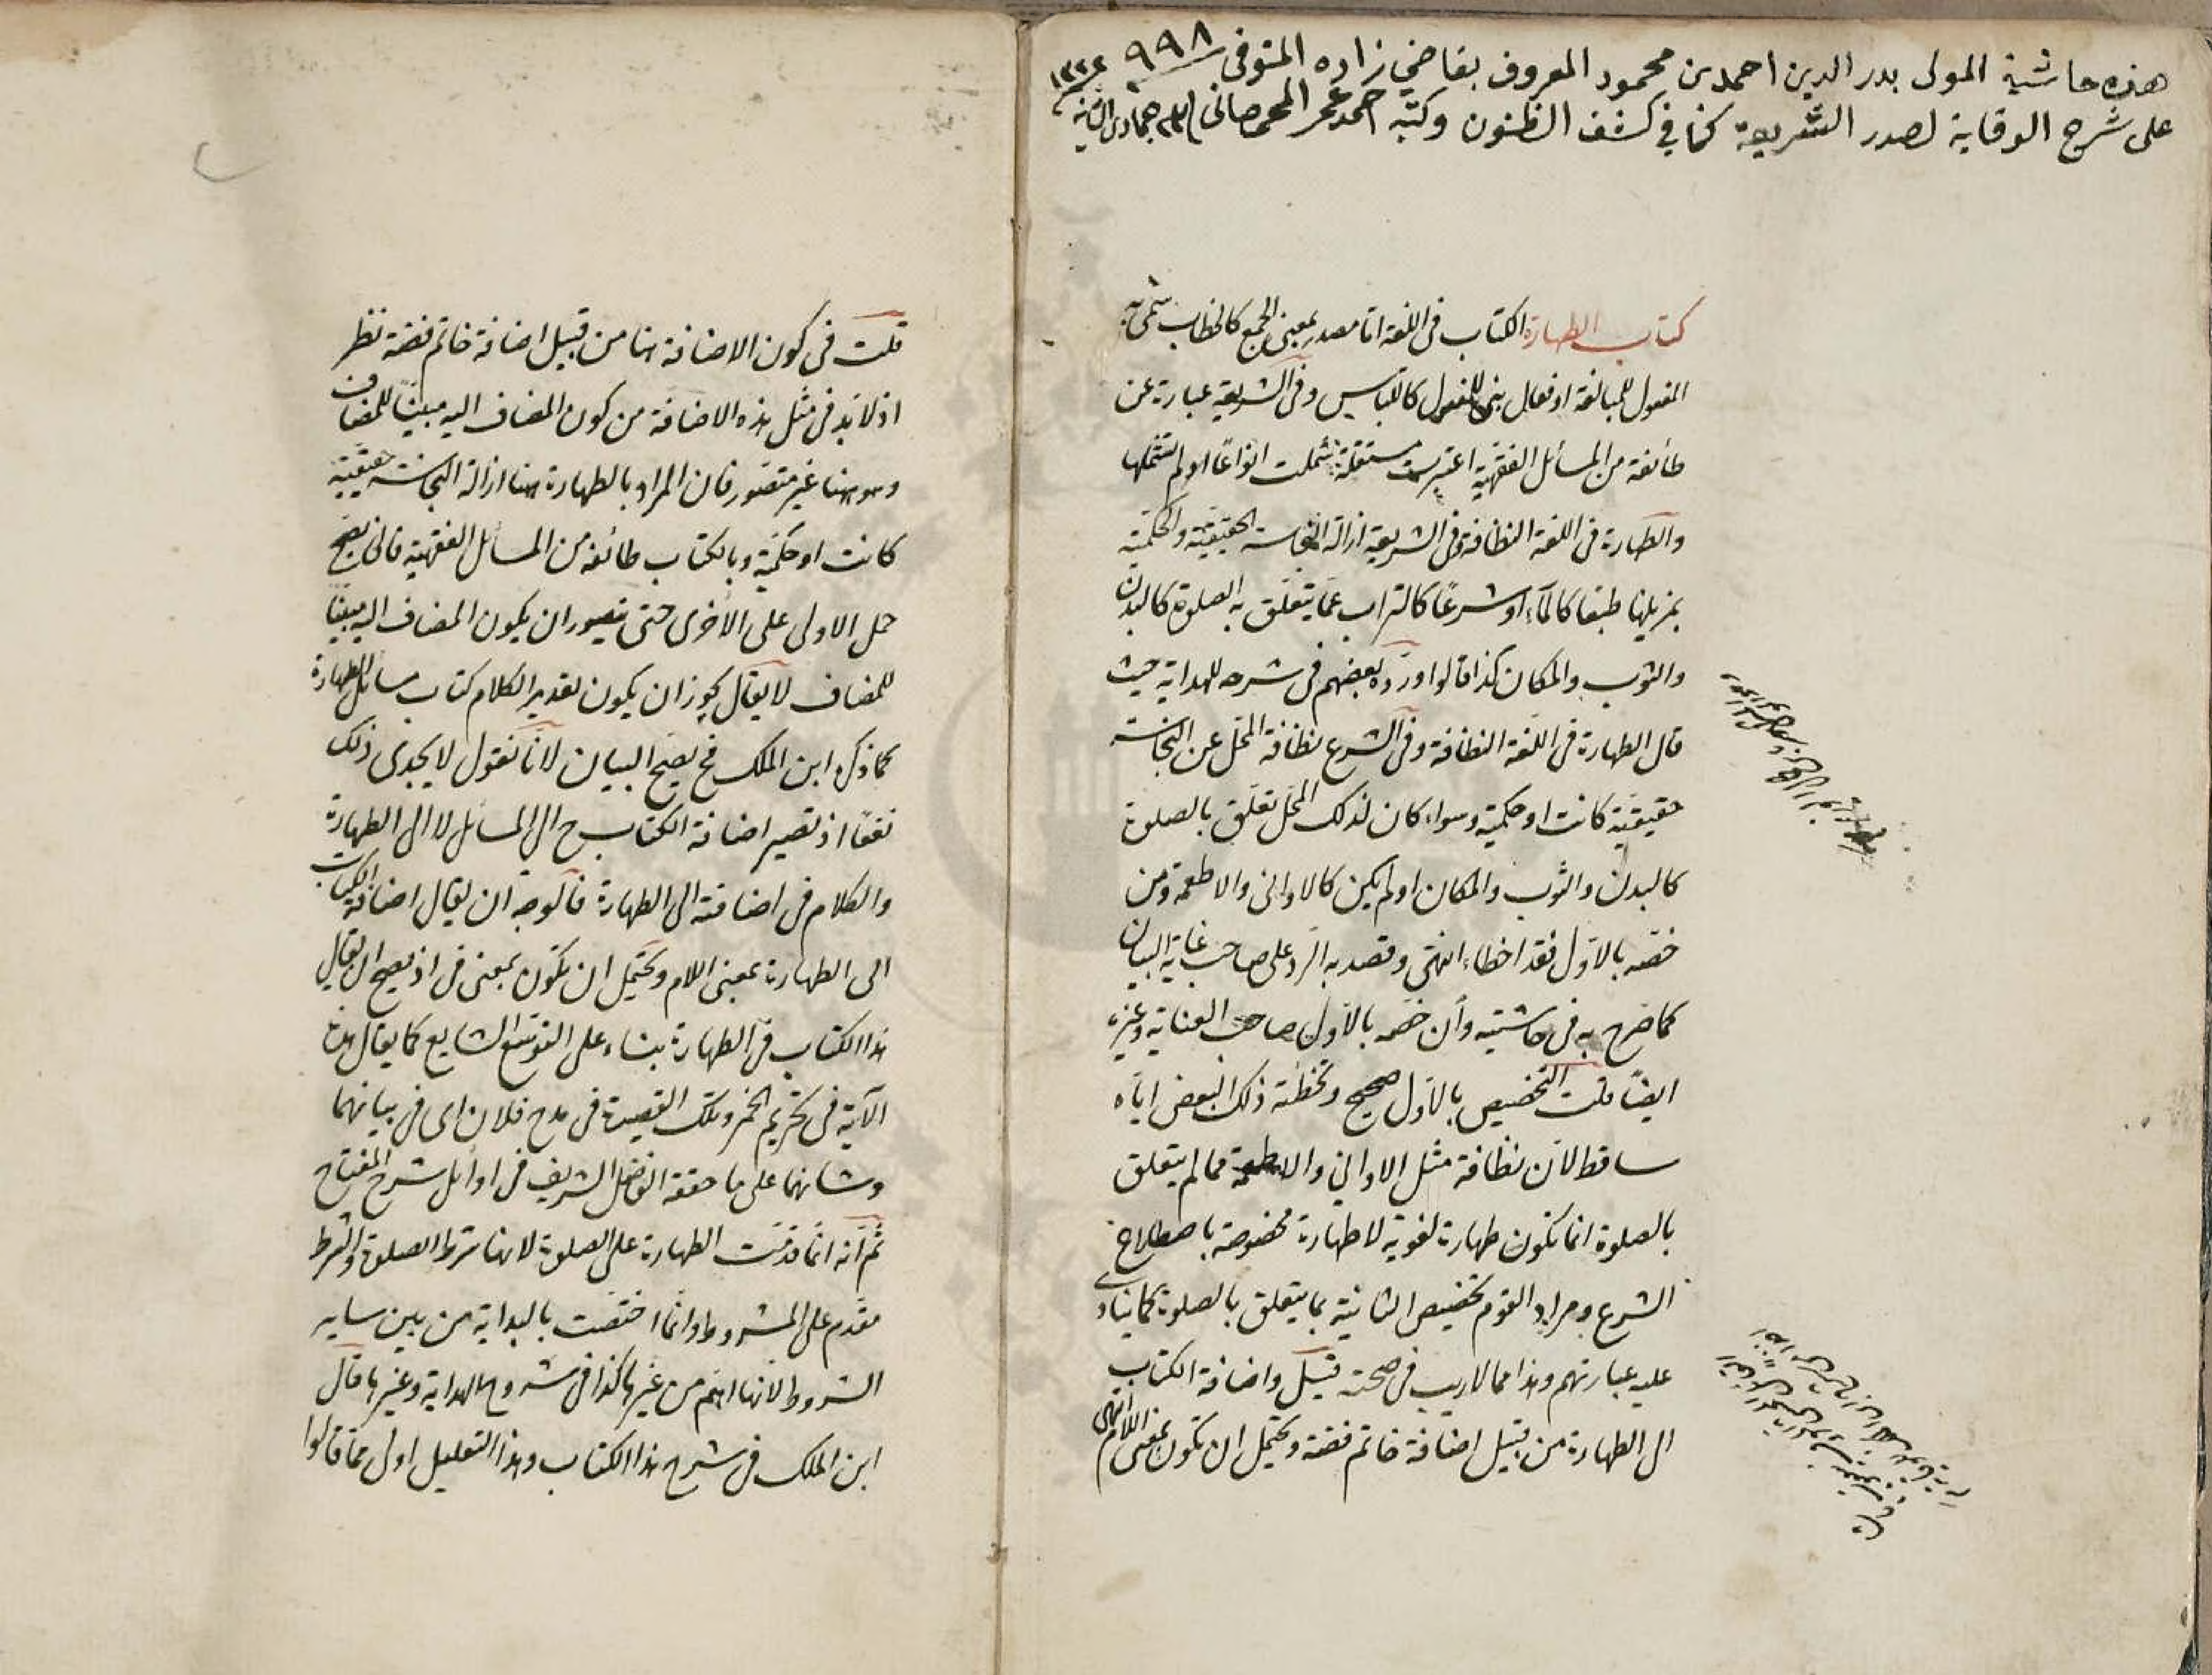 هذه حاشية المولى بدر الدين احمد بن محمود المعروف بقاضي زاده المتوفى ٩٩٨
على شرح الوقاية لصدر الشريعة كما في كشف الظنون وكتبه احمد عمر المحمصاني جمادى الثانية ١٣٢٢
كتاب الطهارة الكتاب فى اللغة اما مصدر بمعنى الجمع كالخطاب سمى به
المفعول للمبالغة او فعال بنى للمفعول كاللباس وفى الشريعة عبارة عن
طائفة من المسائل الفقهية اعتبرت مستقلة شملت انواعًا او لم تشملها
والطهارة فى اللغة النظافة وفى الشريعة ازالة النجاسة الحقيقية والحكمية
بمزيلها طبعا كالماء او شرعًا كالتراب عمّا يتعلق به الصلوة كالبدن
والثوب والمكان كذا قالوا وردّه بعضهم فى شرحه للهداية حيث
قال الطهارة فى اللغة النظافة وفى الشرع نظافة المحل عن النجاسة
حقيقية كانت او حكمية وسواء كان لذلك المحل تعلق بالصلوة
كالبدن والثوب والمكان او لم يكن كالاوانى والاطعمة ومن
خصه بالاول فقد اخطاء انتهى وقصد به الرد على صاحب غاية البيان
كما صرح به فى حاشيته وان خصه بالاول صاحب العناية وغيره
ايضًا قلت التخصيص بالاول صحيح وتخطئة ذلك البعض اياه
ساقط لان نظافة مثل الاوانى والاطعمة مما لم يتعلق
بالصلوة انما تكون طهارة لغوية لا طهارة مخصوصة باصطلاح
الشرع ومراد القوم تخصيص الثانية بما يتعلق بالصلوة كما ينادى
عليه عباراتهم وهذا مما لا ريب فى صحته قيل واضافة الكتاب
الى الطهارة من قبيل اضافة خاتم فضة ويحتمل ان تكون بمعنى اللام انتهى
قلت فى كون الاضافة هنا من قبيل اضافة خاتم فضة نظر
اذ لا بد فى مثل هذه الاضافة من كون المضاف اليه مبينًا للمضاف
وهو ههنا غير متصور فان المراد بالطهارة ههنا ازالة النجاسة حقيقية
كانت او حكمية وبالكتاب طائفة من المسائل الفقهية فانى يصح
حمل الاولى على الاخرى حتى يتصور ان يكون المضاف اليه مبينًا
للمضاف لا يقال يجوز ان يكون تقدير الكلام كتاب مسائل الطهارة
كما ذكره ابن الملك فح يصح البيان لانا نقول لا يجدى ذلك
نفعًا اذ تصير اضافة الكتاب ح الى المسائل لا الى الطهارة
والكلام فى اضافته الى الطهارة فالوجه ان يقال اضافة الكتاب
الى الطهارة بمعنى اللام ويحتمل ان تكون بمعنى فى اذ يصح ان يقال
هذا الكتاب فى الطهارة بناء على التوسع الشايع كما يقال هذه
الآية فى تحريم الخمر وتلك القصيدة فى مدح فلان اى فى بيانهما
وشانهما على ما حققه الفاضل الشريف فى اوائل شرح المفتاح
ثم انه انما قدمت الطهارة على الصلوة لانها شرط الصلوة والشرط
مقدم على المشروط وانما اختصت بالبداية من بين ساير
الشروط لانها اهم من غيرها كذا فى شروح الهداية وغيرها قال
ابن الملك فى شرح هذا الكتاب وهذا التعليل اولى مما قالوا